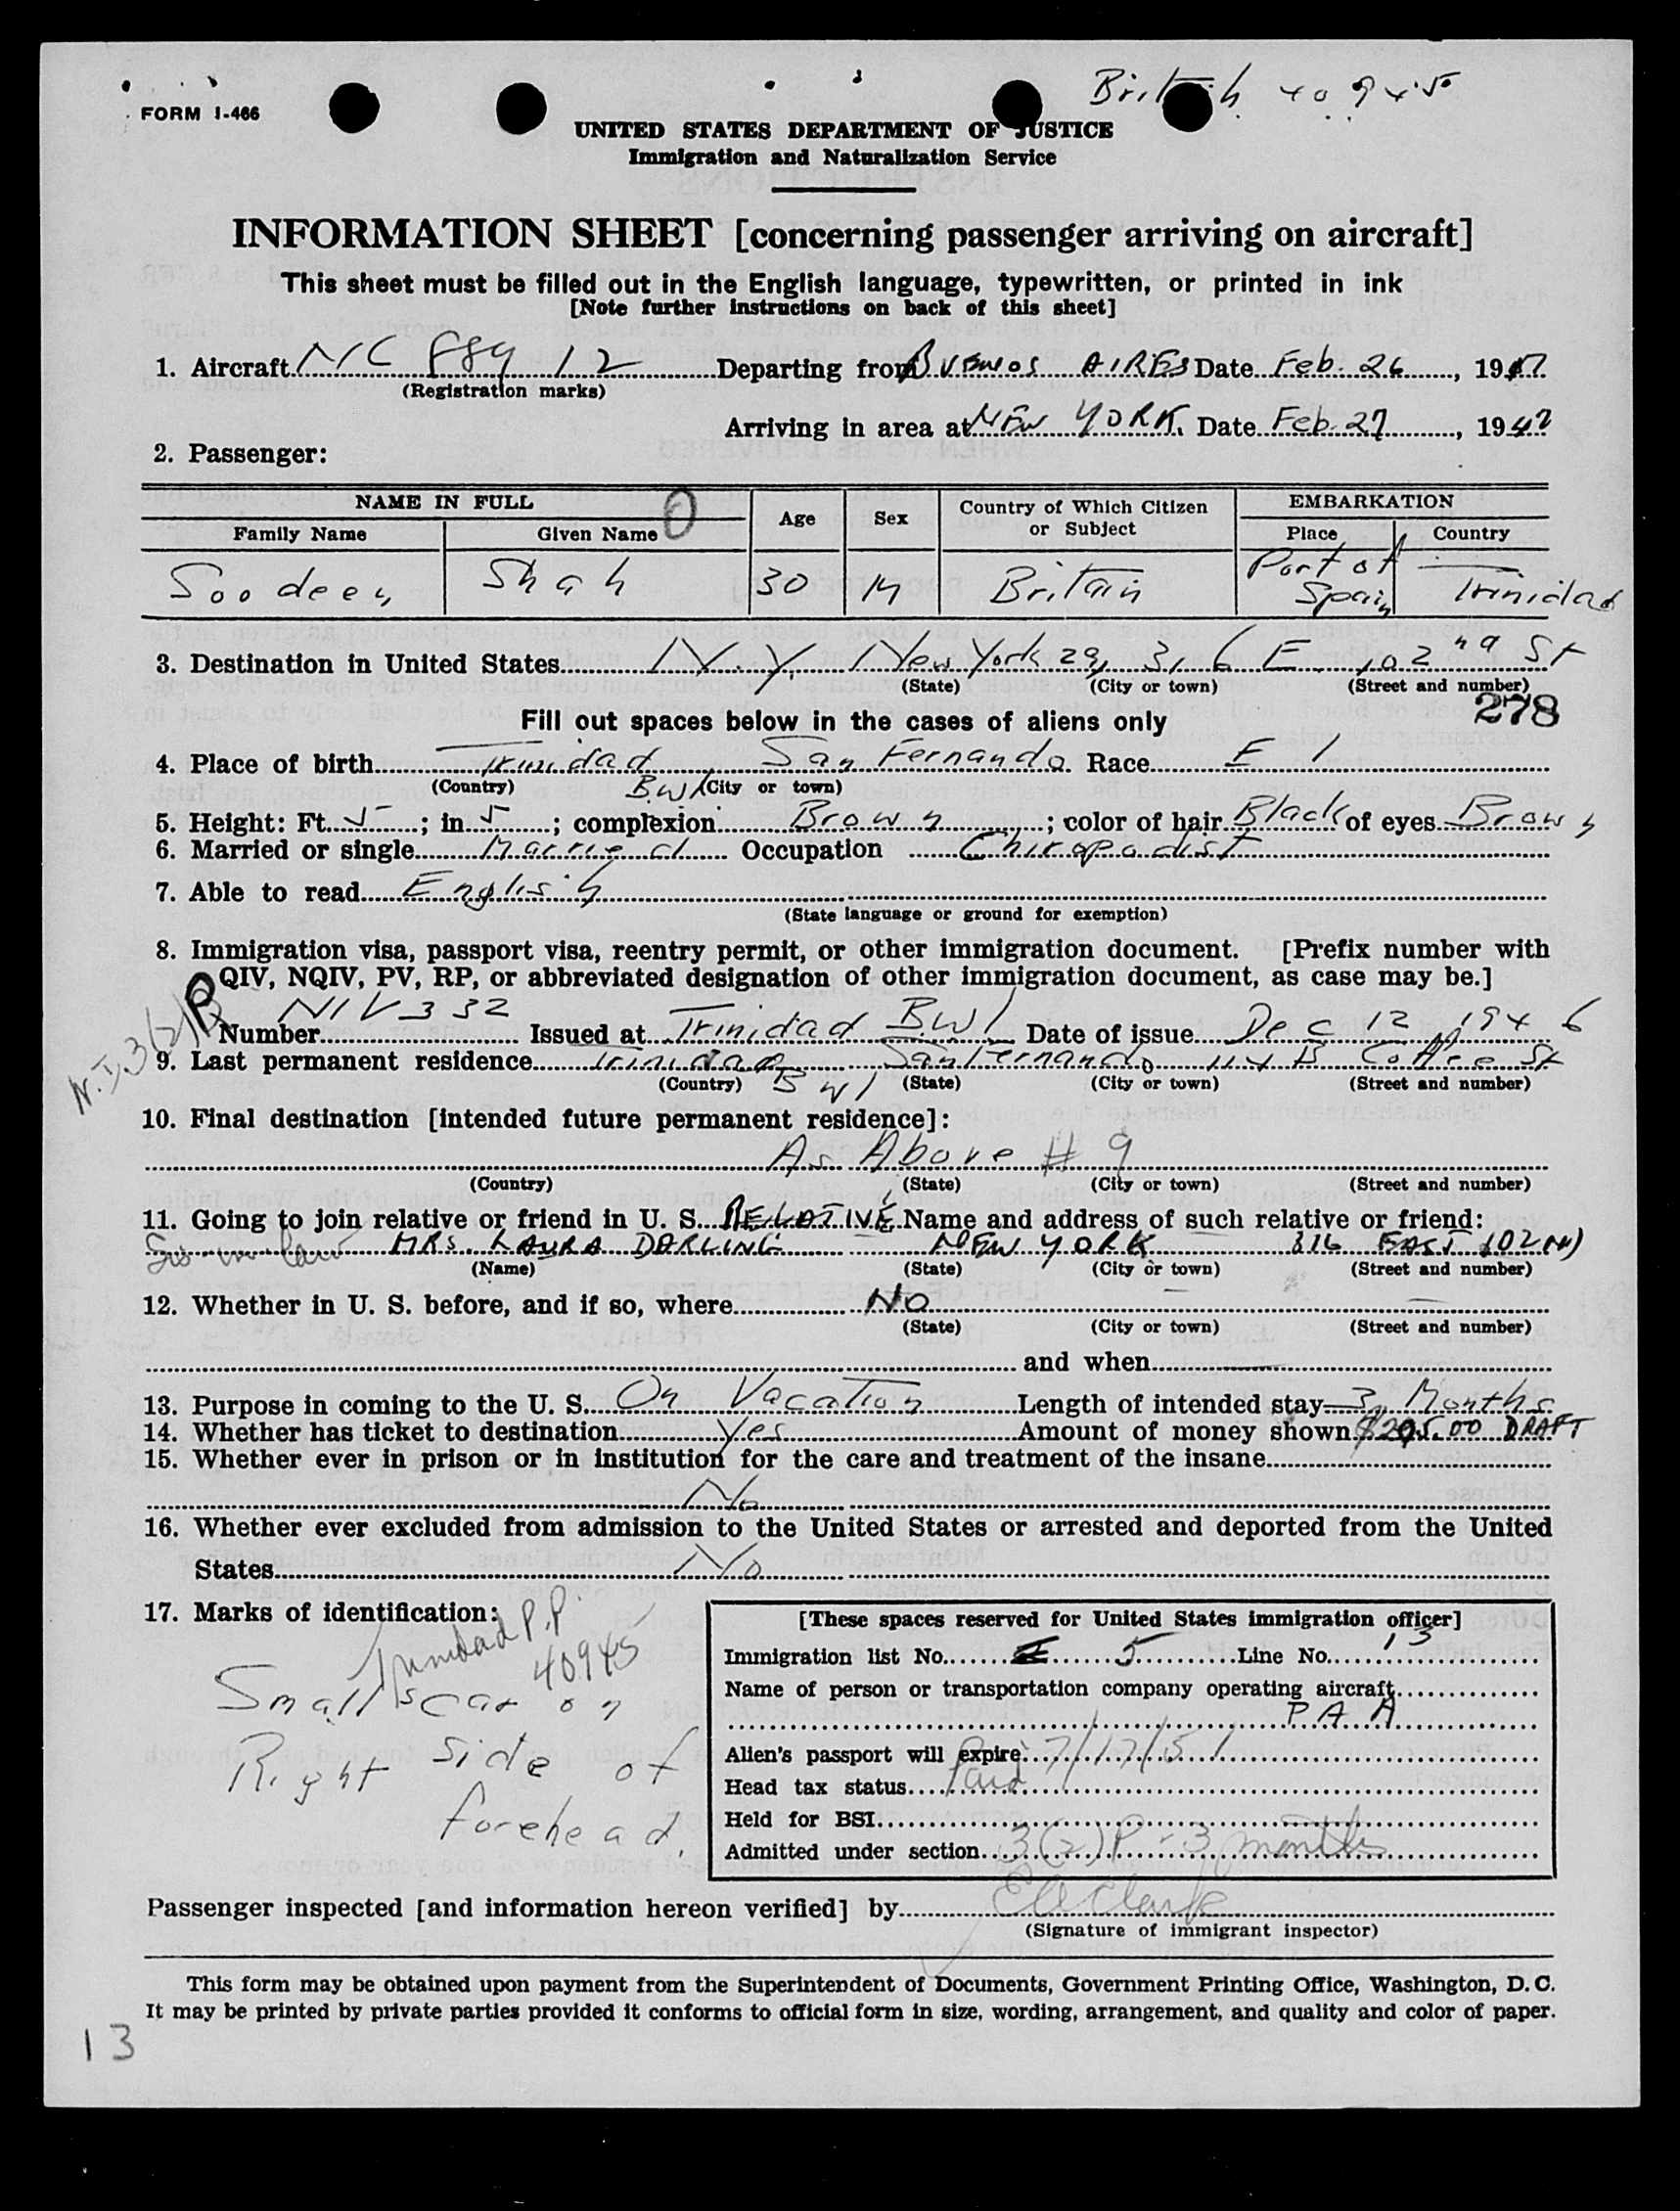 British 40945
FORM I-466
UNITED STATES DEPARTMENT OF JUSTICE
Immigration and Naturalization Service
INFORMATION SHEET [concerning passenger arriving on aircraft]
This sheet must be filled out in the English language, typewritten, or printed in ink
[Note further instructions on back of this sheet]
1. Aircraft NC 88912 Departing from BUENOS AIRES Date Feb. 26, 1947
(Registration marks)
Arriving in area at NEW YORK. Date Feb. 27, 1947
2. Passenger:
NAME IN FULL Age Sex Country of Which Citizen or Subject EMBARKATION
Family Name Given Name Place Country
Soodeen Shah 30 M Britain Port of Spain Trinidad
3. Destination in United States N.Y. New York 29, 316 E 102nd St
(State) (City or town) (Street and number)
278
Fill out spaces below in the cases of aliens only
4. Place of birth Trinidad San Fernando Race E I
(Country) B.W.I (City or town)
5. Height: Ft. 5; in. 5; complexion Brown; color of hair Black of eyes Brown
6. Married or single Married Occupation Chiropodist
7. Able to read English
(State language or ground for exemption)
8. Immigration visa, passport visa, reentry permit, or other immigration document. [Prefix number with
QIV, NQIV, PV, RP, or abbreviated designation of other immigration document, as case may be.]
Number NIV 332 Issued at Trinidad BWI Date of issue Dec 12 1946
9. Last permanent residence Trinidad San Fernando Coffee St
(Country) BWI (State) (City or town) (Street and number)
10. Final destination [intended future permanent residence]:
As Above # 9
(Country) (State) (City or town) (Street and number)
11. Going to join relative or friend in U. S. RELATIVE Name and address of such relative or friend:
Sis-in law MRS. LAURA DARLING NEW YORK 316 EAST 102
(Name) (State) (City or town) (Street and number)
12. Whether in U. S. before, and if so, where NO
(State) (City or town) (Street and number)
and when
13. Purpose in coming to the U. S. On Vacation Length of intended stay 3 Months
14. Whether has ticket to destination Yes Amount of money shown $205.00 DRAFT
15. Whether ever in prison or in institution for the care and treatment of the insane
No
16. Whether ever excluded from admission to the United States or arrested and deported from the United
States No
17. Marks of identification:
Trinidad P.P.
40945
Small scar on
Right side of
forehead.
[These spaces reserved for United States immigration officer]
Immigration list No. 5 Line No. 13
Name of person or transportation company operating aircraft
P A A
Alien's passport will expire 7/17/51
Head tax status Paid
Held for BSI
Admitted under section 3(2)P - 3 months
Passenger inspected [and information hereon verified] by Clark
(Signature of immigrant inspector)
This form may be obtained upon payment from the Superintendent of Documents, Government Printing Office, Washington, D. C.
It may be printed by private parties provided it conforms to official form in size, wording, arrangement, and quality and color of paper.
13